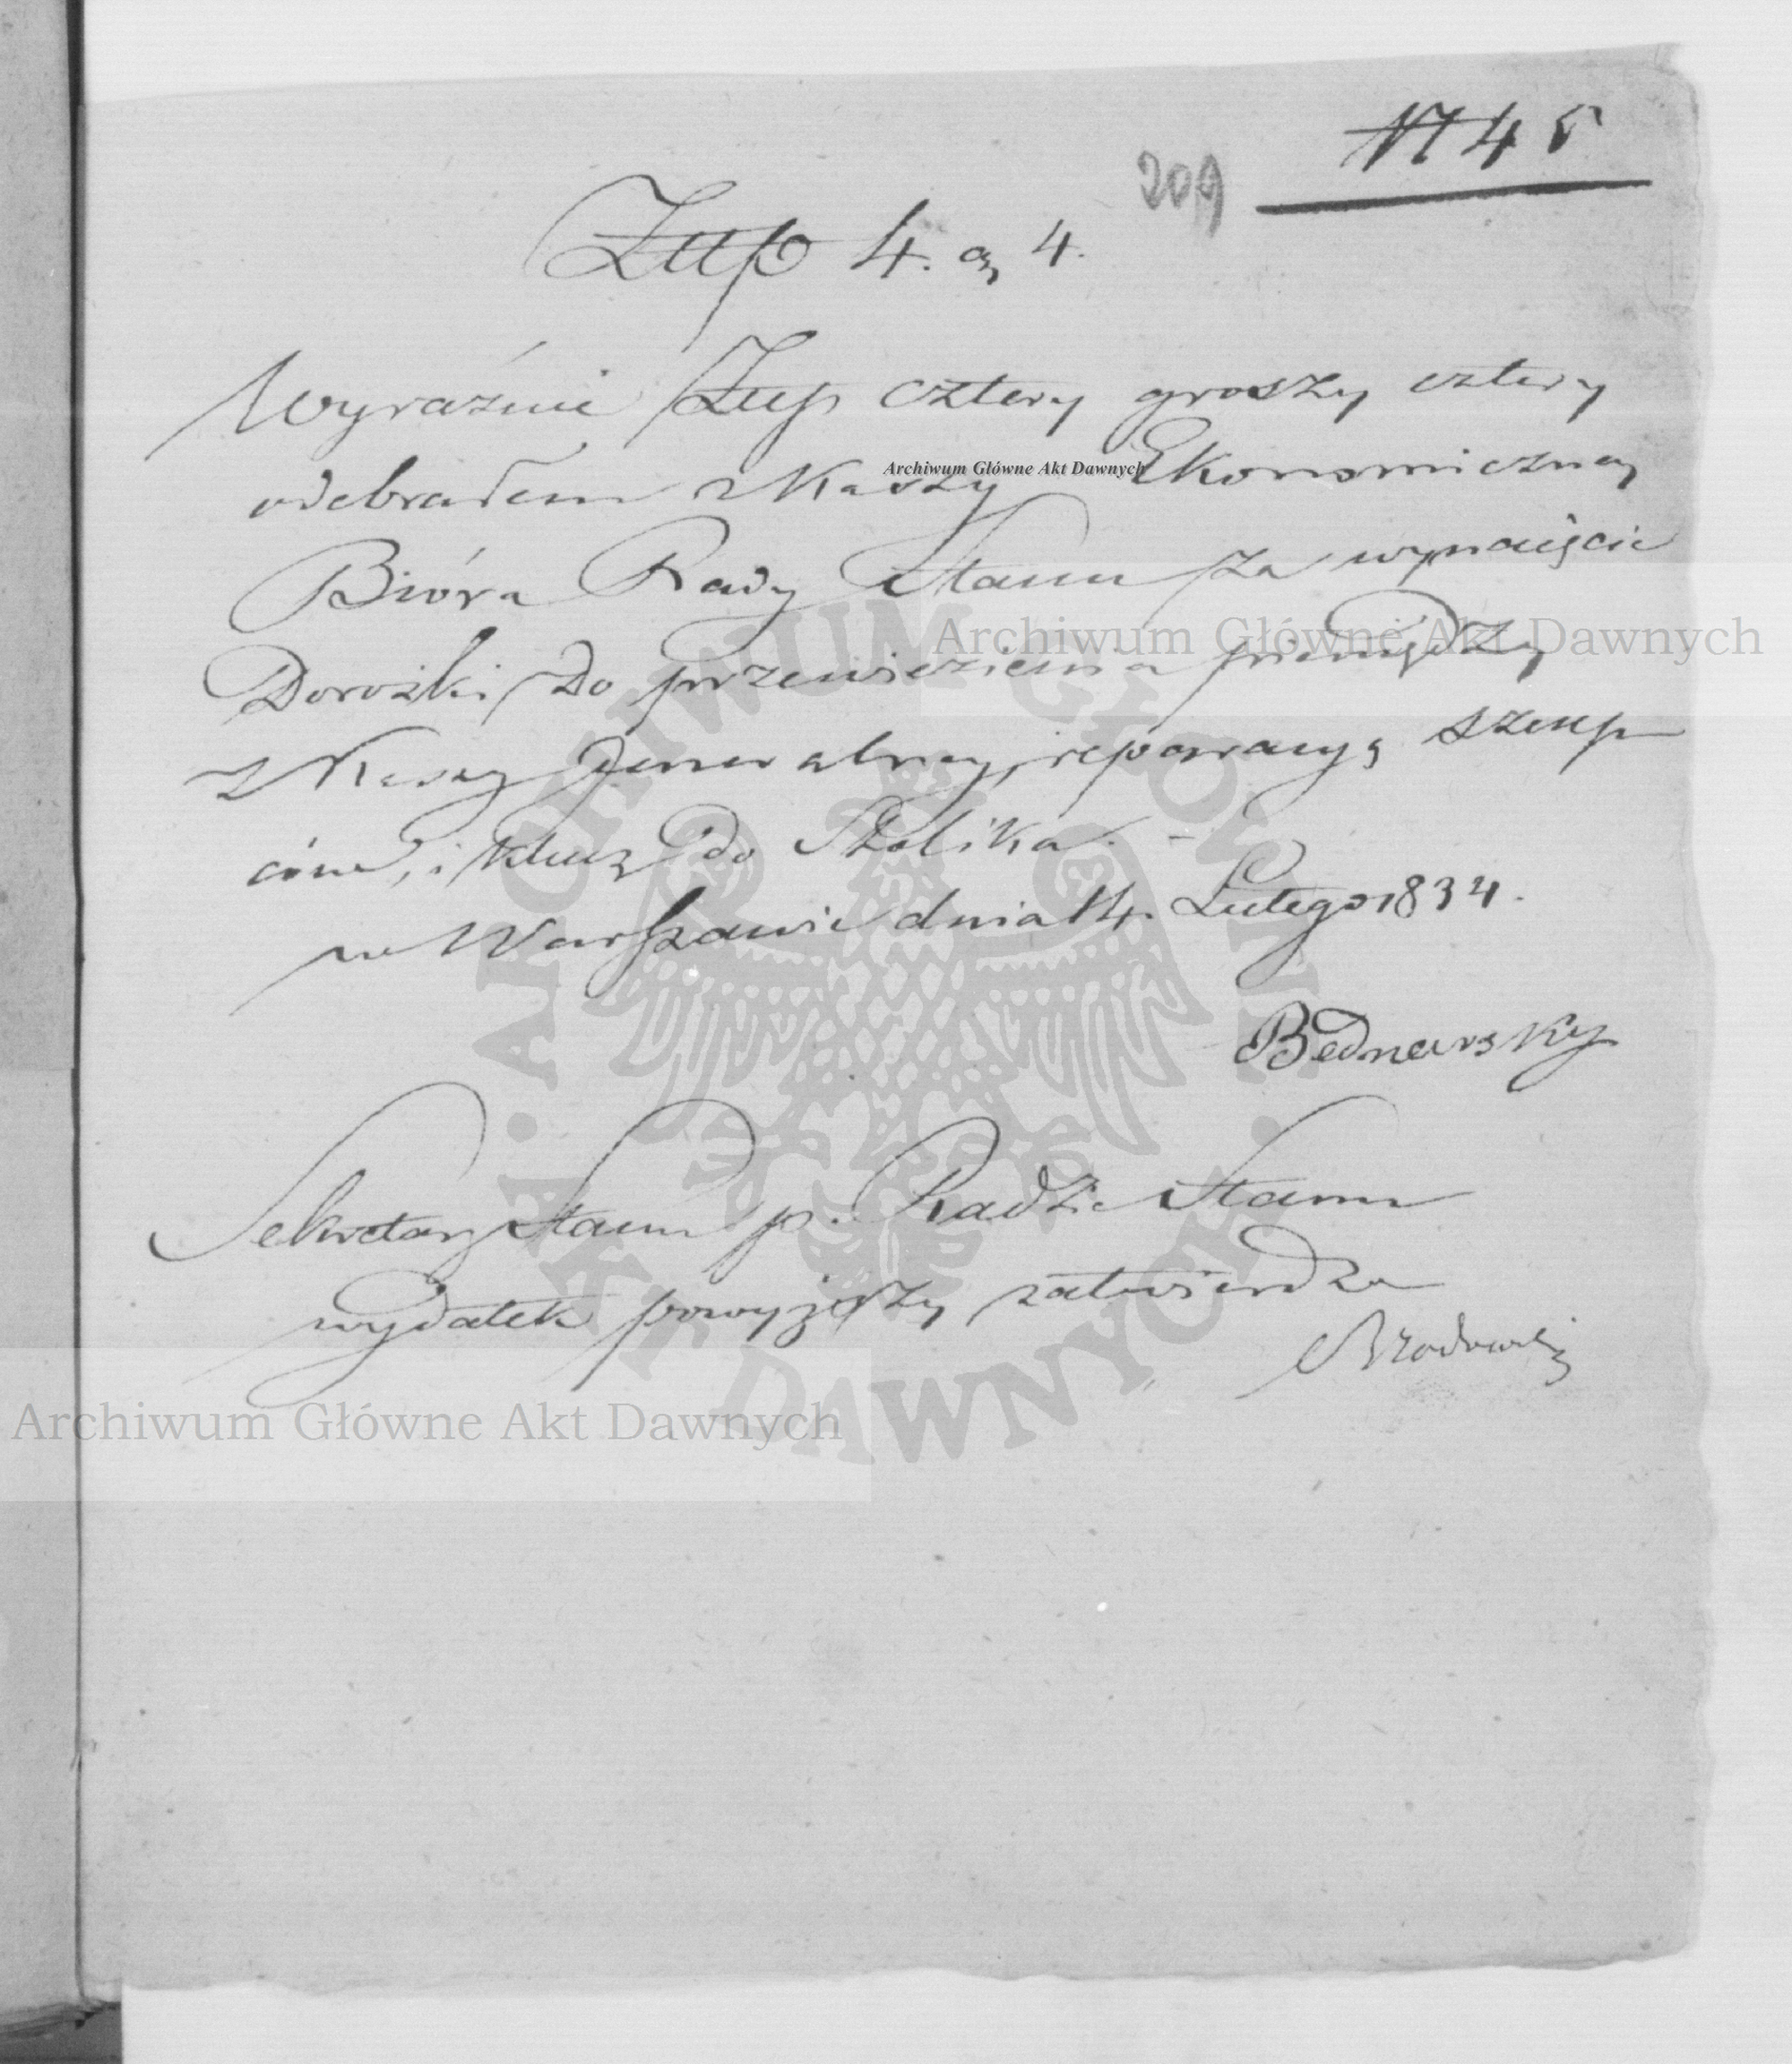 N 45
209
Złp 4. gr 4.
Wyraźnie Złp cztery groszy cztery
odebrałem z Kassy Ekonomiczney
Archiwum Główne Akt Dawnych
Bióra Rady Stanu za wynaięcie
Dorożki do przewiezienia pieniędzy
Archiwum Główne Akt Dawnych
z Kassy Generalney, reparacyą szczyp
ców, i klucz do Stolika. -
w Warszawie dnia 14. Lutego 1834.
Bednarsky
Sekretarz Stanu p. Radzie Stanu
wydatek powyższy zatwierdza
Brzozowski
Archiwum Główne Akt Dawnych
ARCHIWUM GŁÓWNE · AKT DAWNYCH ·